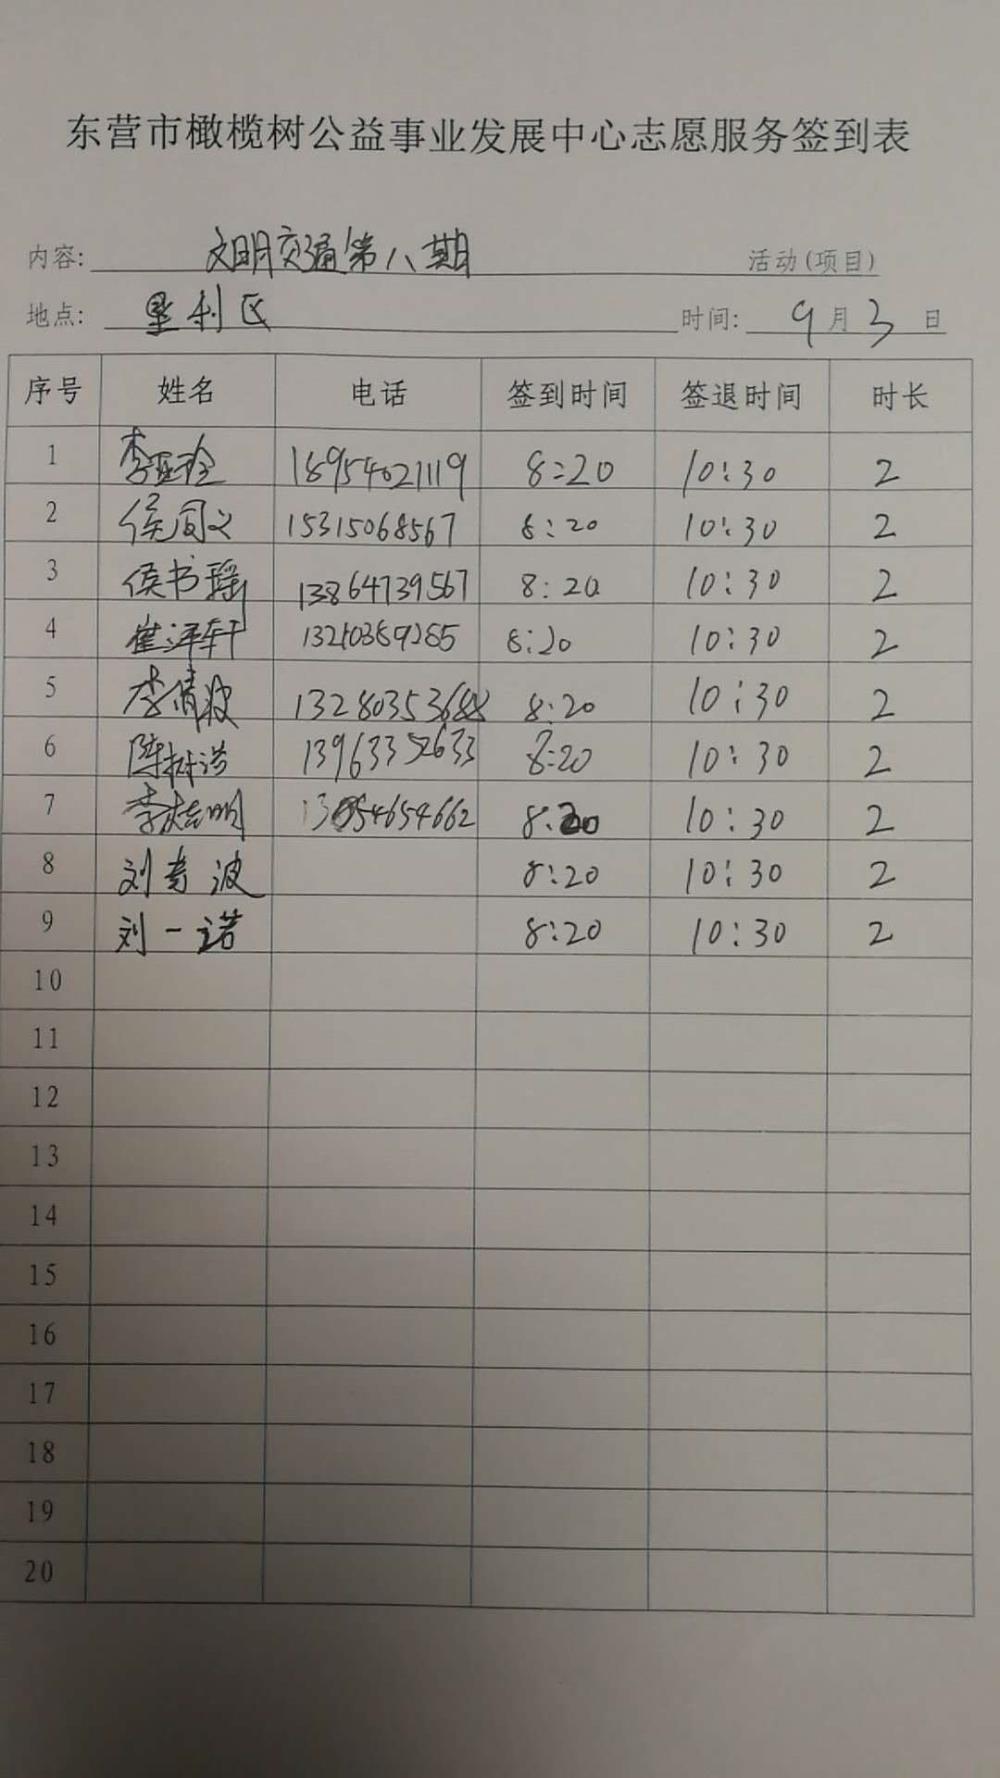 东营市橄榄树公益事业发展中心志愿服务签到表
内容: 文明交通第八期 活动(项目)
地点: 垦利区 时间: 9月3日
序号 姓名 电话 签到时间 签退时间 时长
1 李亚玲 18954021119 8:20 10:30 2
2 侯同义 15315068567 8:20 10:30 2
3 侯书瑶 13864739567 8:20 10:30 2
4 崔泽轩 8:20 10:30 2
5 李倩波 13280353688 8:20 10:30 2
6 陈树浩 13963352633 8:20 10:30 2
7 李志明 8:20 10:30 2
8 刘波 8:20 10:30 2
9 刘一诺 8:20 10:30 2
10
11
12
13
14
15
16
17
18
19
20